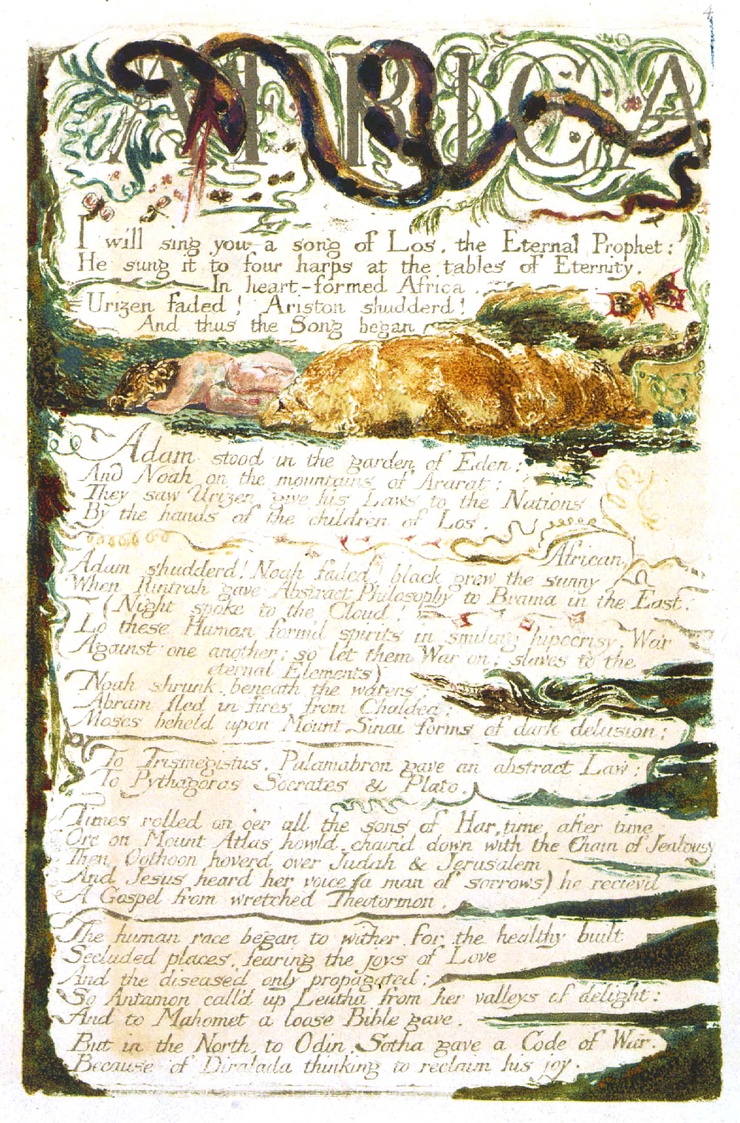 4
AFRICA
I will sing you a song of Los. the Eternal Prophet:
He sung it to four harps at the tables of Eternity.
In heart-formed Africa.
Urizen faded! Ariston shudderd!
And thus the Song began
Adam stood in the garden of Eden:
And Noah on the mountains of Ararat:
They saw Urizen give his Laws to the Nations
By the hands of the children of Los.
Adam shudderd! Noah faded! black grew the sunny African
When Rintrah gave Abstract Philosophy to Brama in the East:
(Night spoke to the Cloud!
Lo these Human form'd spirits in smiling hipocrisy. War
Against one another; so let them War on; slaves to the
eternal Elements)
Noah shrunk, beneath the waters;
Abram fled in fires from Chaldea;
Moses beheld upon Mount Sinai forms of dark delusion:
To Trismegistus. Palamabron gave an abstract Law:
To Pythagoras Socrates & Plato.
Times rolled on o'er all the sons of Har, time after time
Orc on Mount Atlas howld, chain'd down with the Chain of Jealousy
Then Oothoon hoverd over Judah & Jerusalem
And Jesus heard her voice (a man of sorrows) he recievd
A Gospel from wretched Theotormon.
The human race began to wither, for the healthy built
Secluded places, fearing the joys of Love
And the diseased only propagated:
So Antamon call'd up Leutha from her valleys of delight:
And to Mahomet a loose Bible gave.
But in the North, to Odin, Sotha gave a Code of War,
Because of Diralada thinking to reclaim his joy.